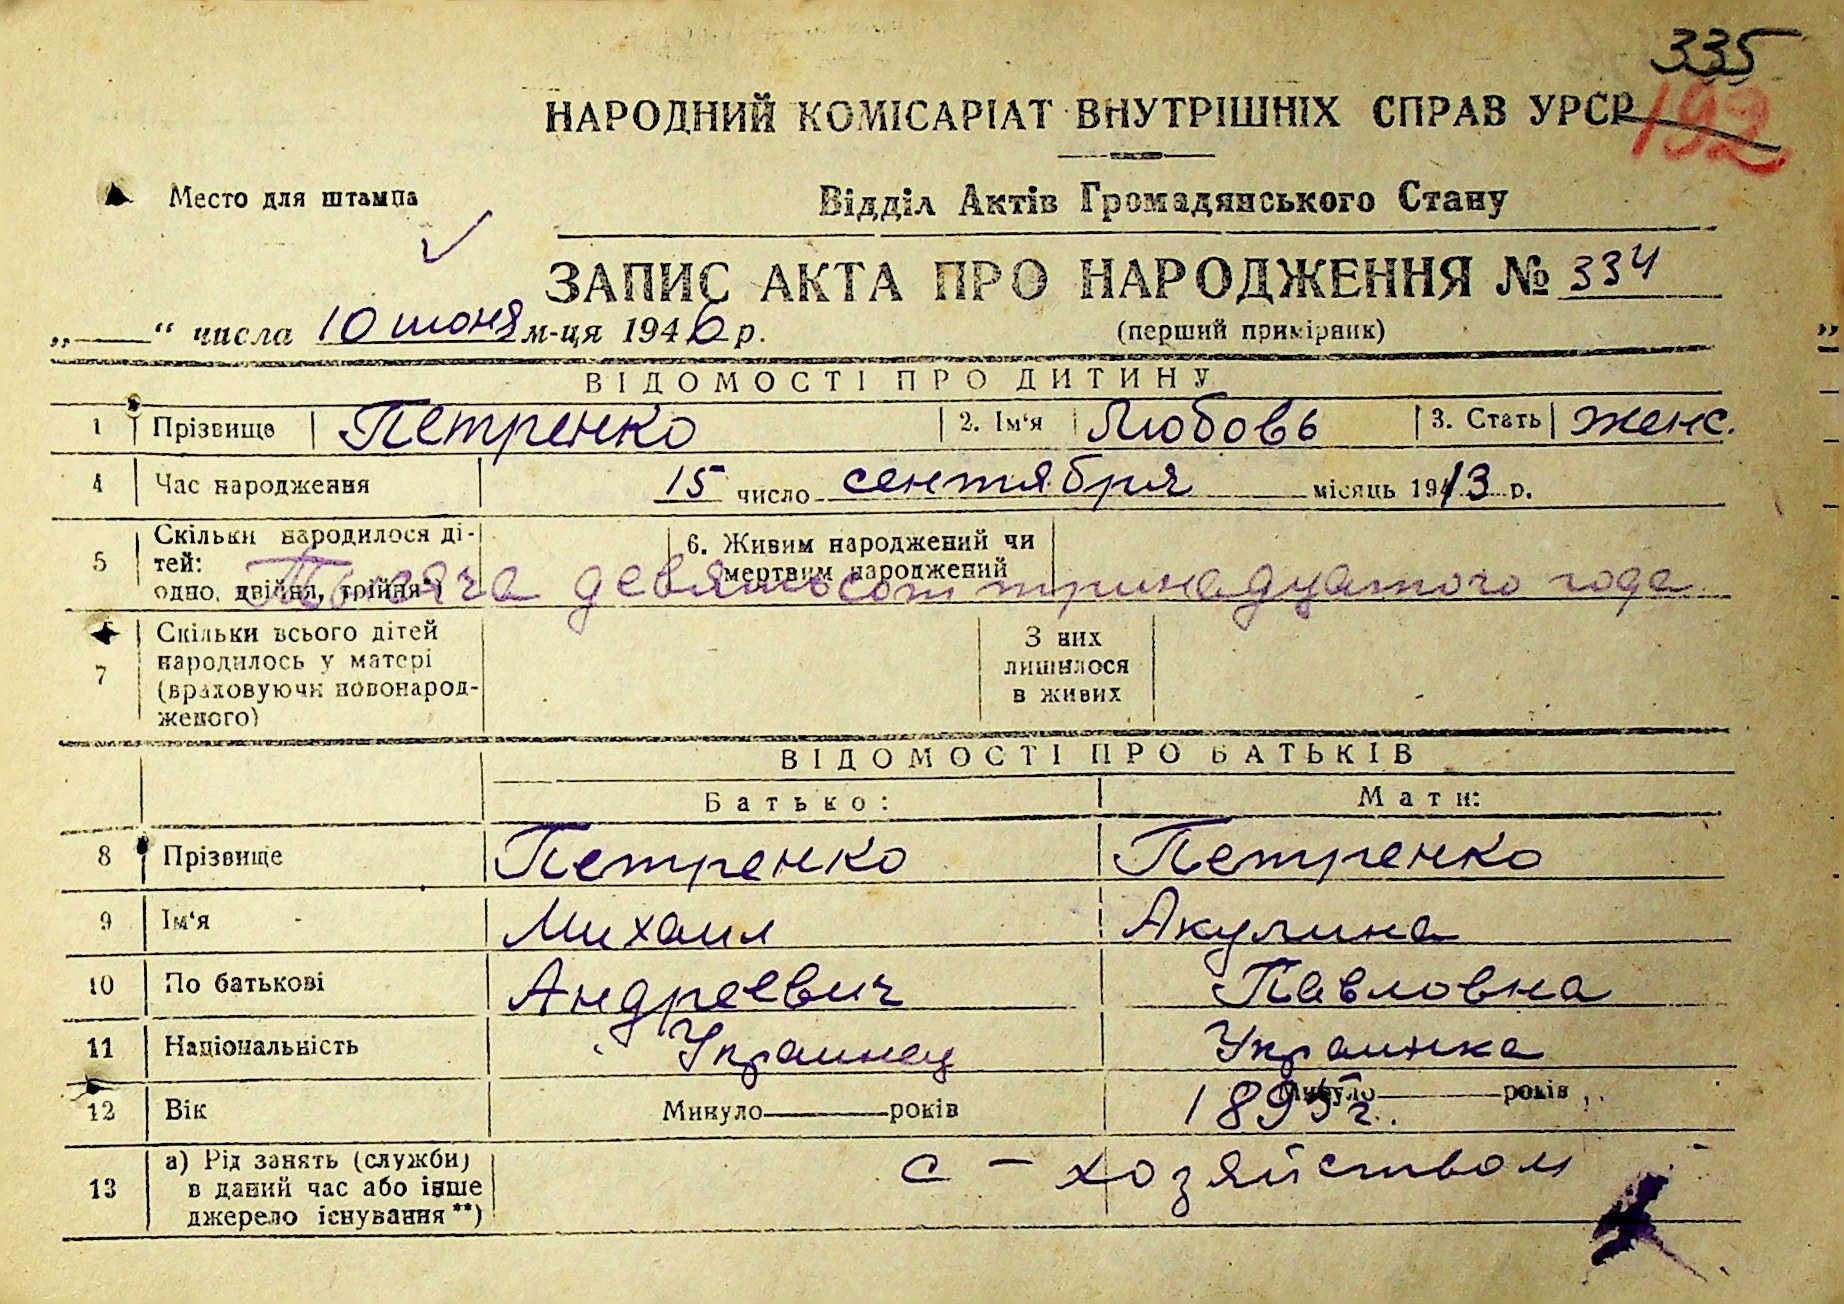 335
192
НАРОДНИЙ КОМІСАРІАТ ВНУТРІШНІХ СПРАВ УРСР
Место для штампа
Відділ Актів Громадянського Стану
ЗАПИС АКТА ПРО НАРОДЖЕННЯ № 334
„——“ числа 10 июня м-ця 1946 р.
(перший примірник)
ВІДОМОСТІ ПРО ДИТИНУ
1 Прізвище Петренко 2. Ім‘я Любовь 3. Стать женс.
4 Час народження 15 число сентября місяць 1913 р.
5 Скільки народилося дітей: одно, двійня, трійня*) 6. Живим народжений чи мертвим народжений
Тысяча девятьсот тринадцатого года
7 Скільки всього дітей народилось у матері (враховуючи новонародженого) З них лишилося в живих
ВІДОМОСТІ ПРО БАТЬКІВ
Батько: Мати:
8 Прізвище Петренко Петренко
9 Ім‘я Михаил Акулина
10 По батькові Андреевич Павловна
11 Національність Украинец Украинка
12 Вік Минуло——років Минуло——років
1895 г.
13 а) Рід занять (служби) в даний час або інше джерело існування**) с — хозяйством